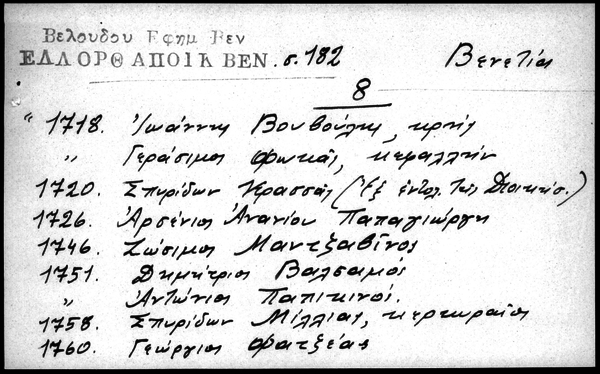 Βελουδου Εφημ Βεν
ΕΛΛΟΡΘ ΑΠΟΙΚ ΒΕΝ. σ. 182 Βενετία
8
" 1718. Ἰωάννης Βουβούλης, κρής
" Γεράσιμος Φωκᾶς, κεφαλλήν
1720. Σπυρίδων Κρασσᾶς (Ἐξ ἐντολ. τῆς Διοικήσ.)
1726. Ἀρσένιος Ἀνανίου Παπαγιώργη
1746. Ζώσιμος Μαντζαβῖνος
1751. Δημήτριος Βαλσαμός
" Ἀντώνιος Παπικινοί.
1758. Σπυρίδων Μίλλιας, κερκυραῖος
1760. Γεώργιος Φατζέας